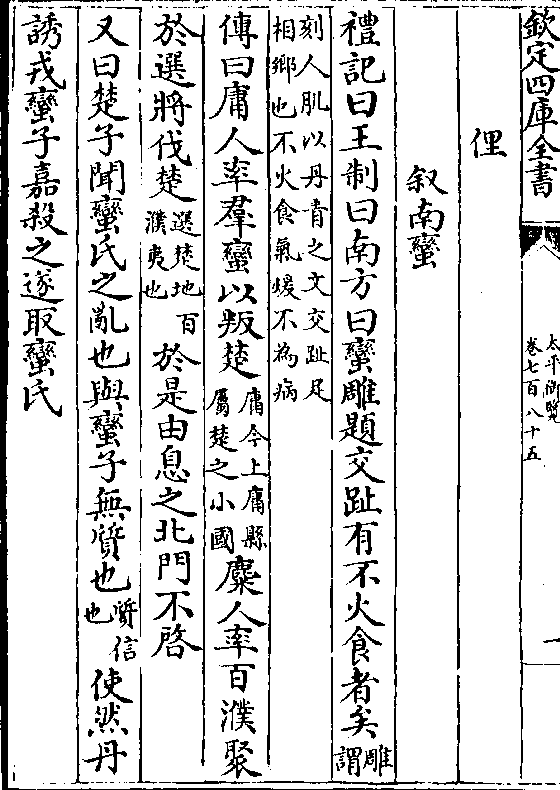 欽定四庫全書
太平御覽
卷七百八十五
一
俚
叙南蠻
禮記曰王制曰南方曰蠻雕題交趾有不火食者矣雕謂
刻人肌以丹青之文交趾足
相鄉也不火食氣煖不為病
傳曰庸人率羣蠻以叛楚庸今上庸縣屬楚之小國麇人率百濮聚
於選將伐楚選楚地百濮夷也於是由息之北門不啓
又曰楚子聞蠻氏之亂也與蠻子無質也質信也使然丹
誘戎蠻子嘉殺之遂取蠻氏